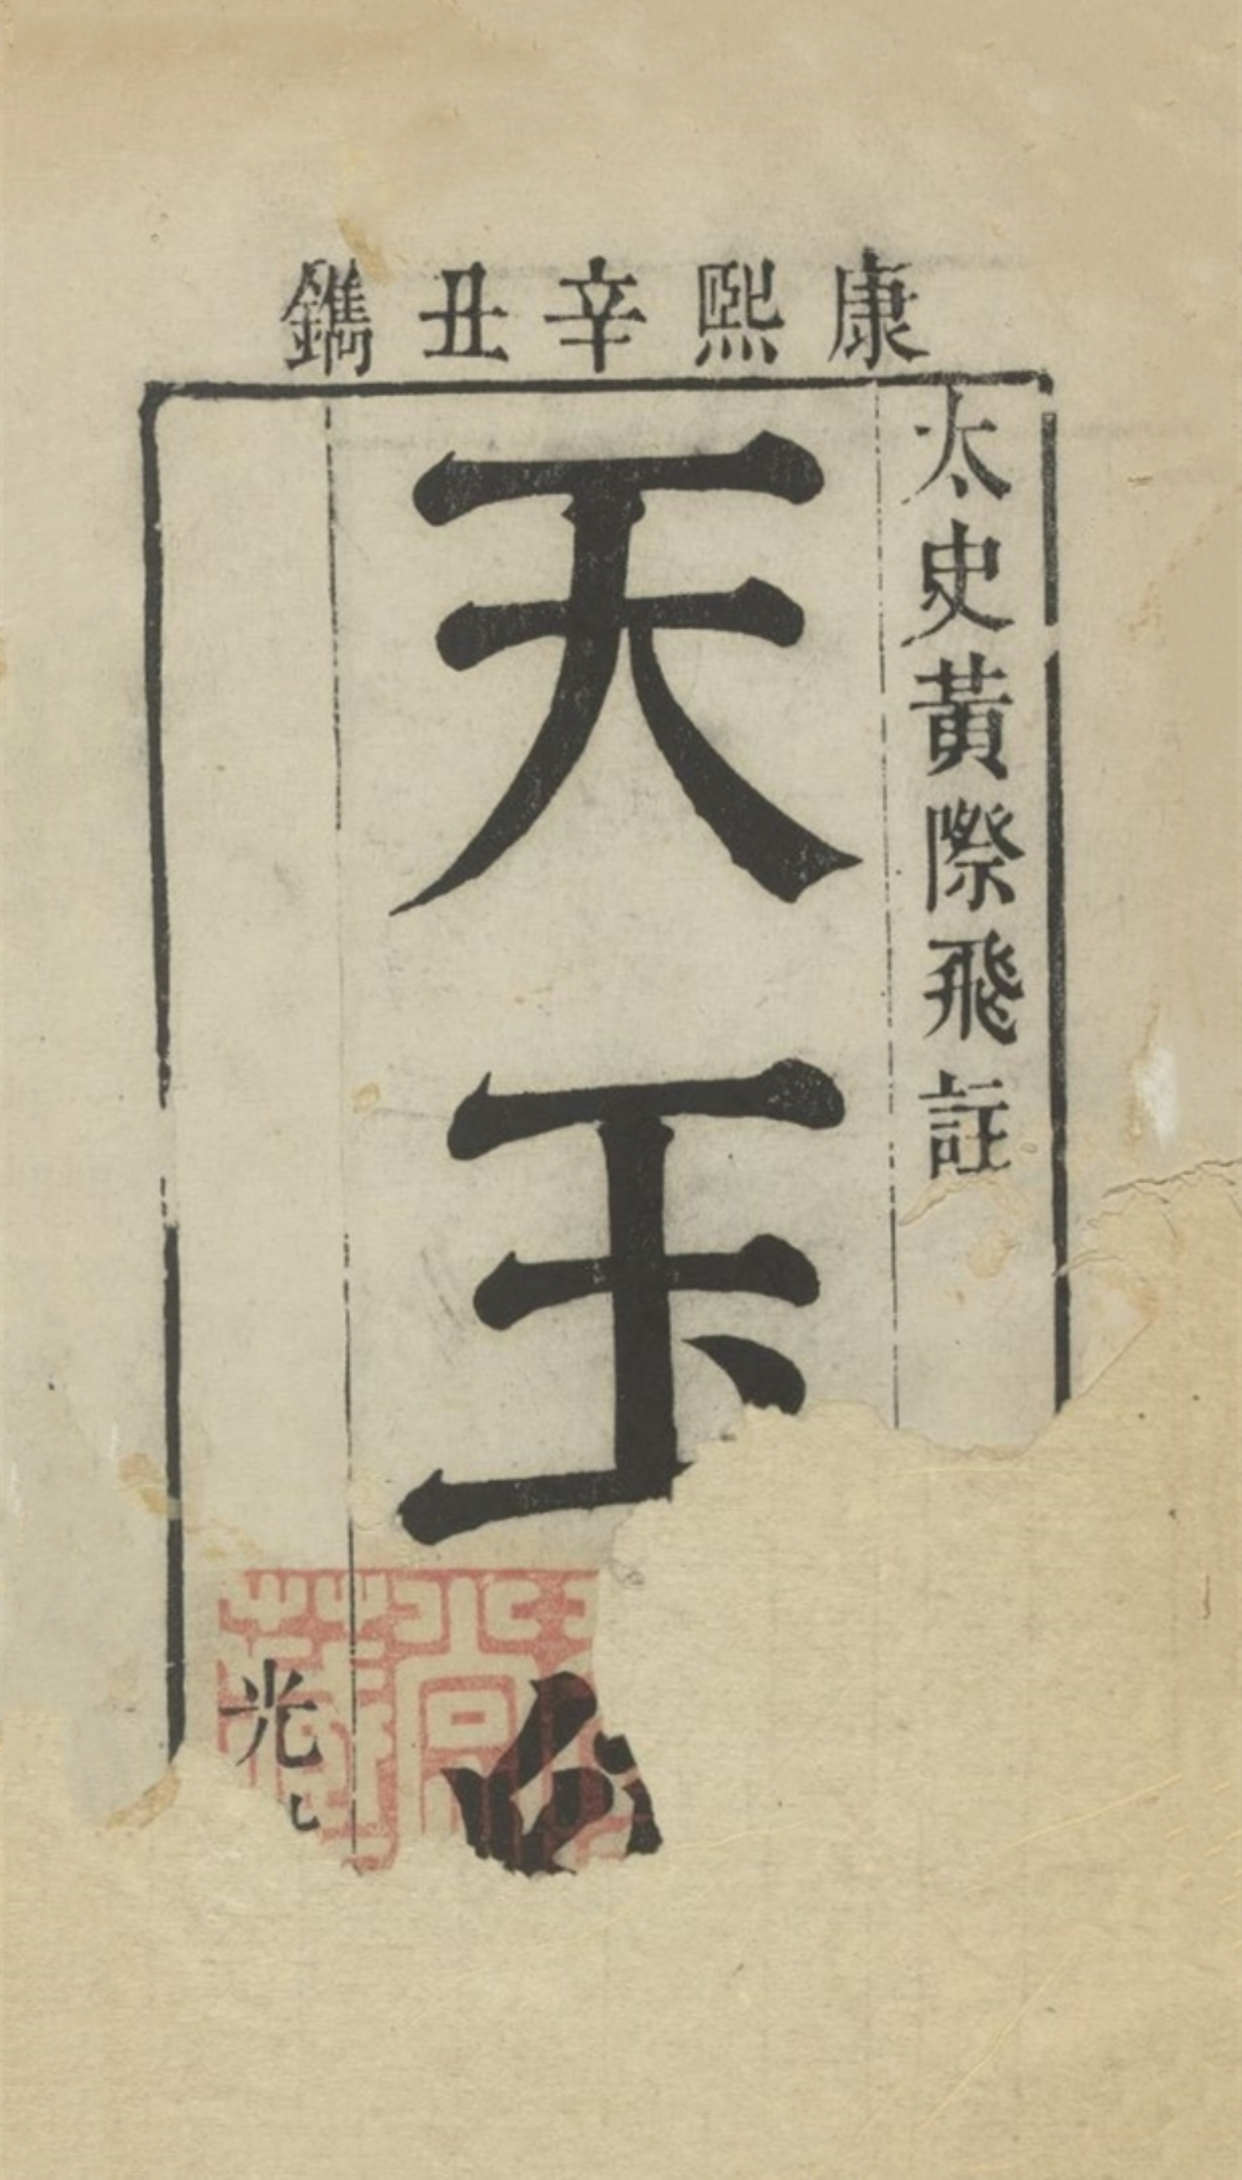 康熙辛丑鐫
太史黃際飛註
天玉
光